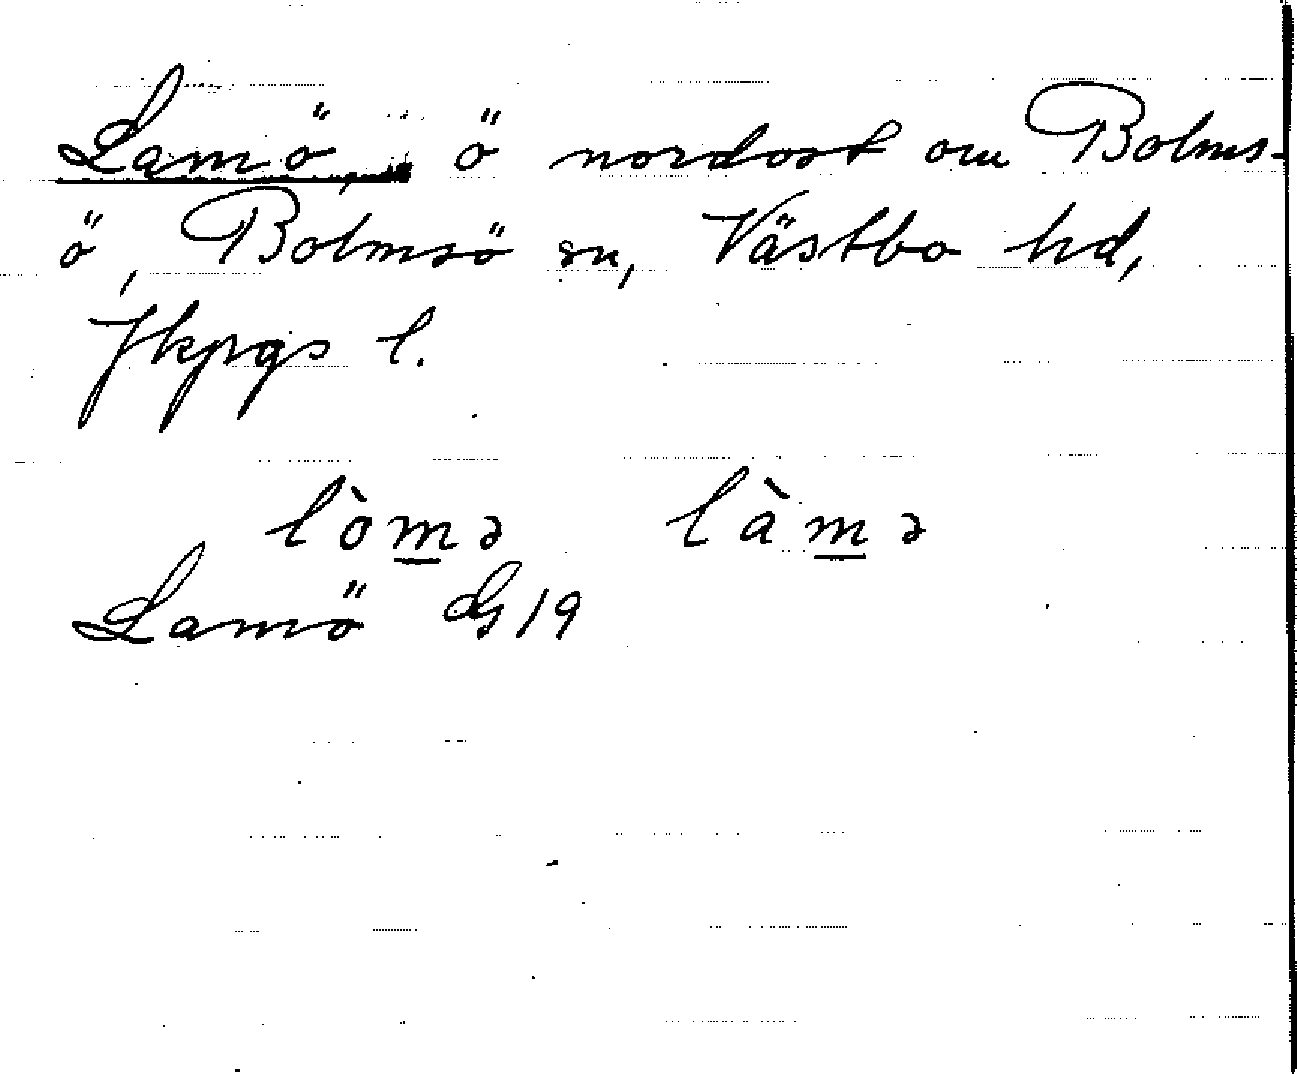 Lamö, ö nordost om Bolms-
ö, Bolmsö sn, Västbo hd,
Jkpgs l.
lòm̲ə làm̲ə
Lamö G 19